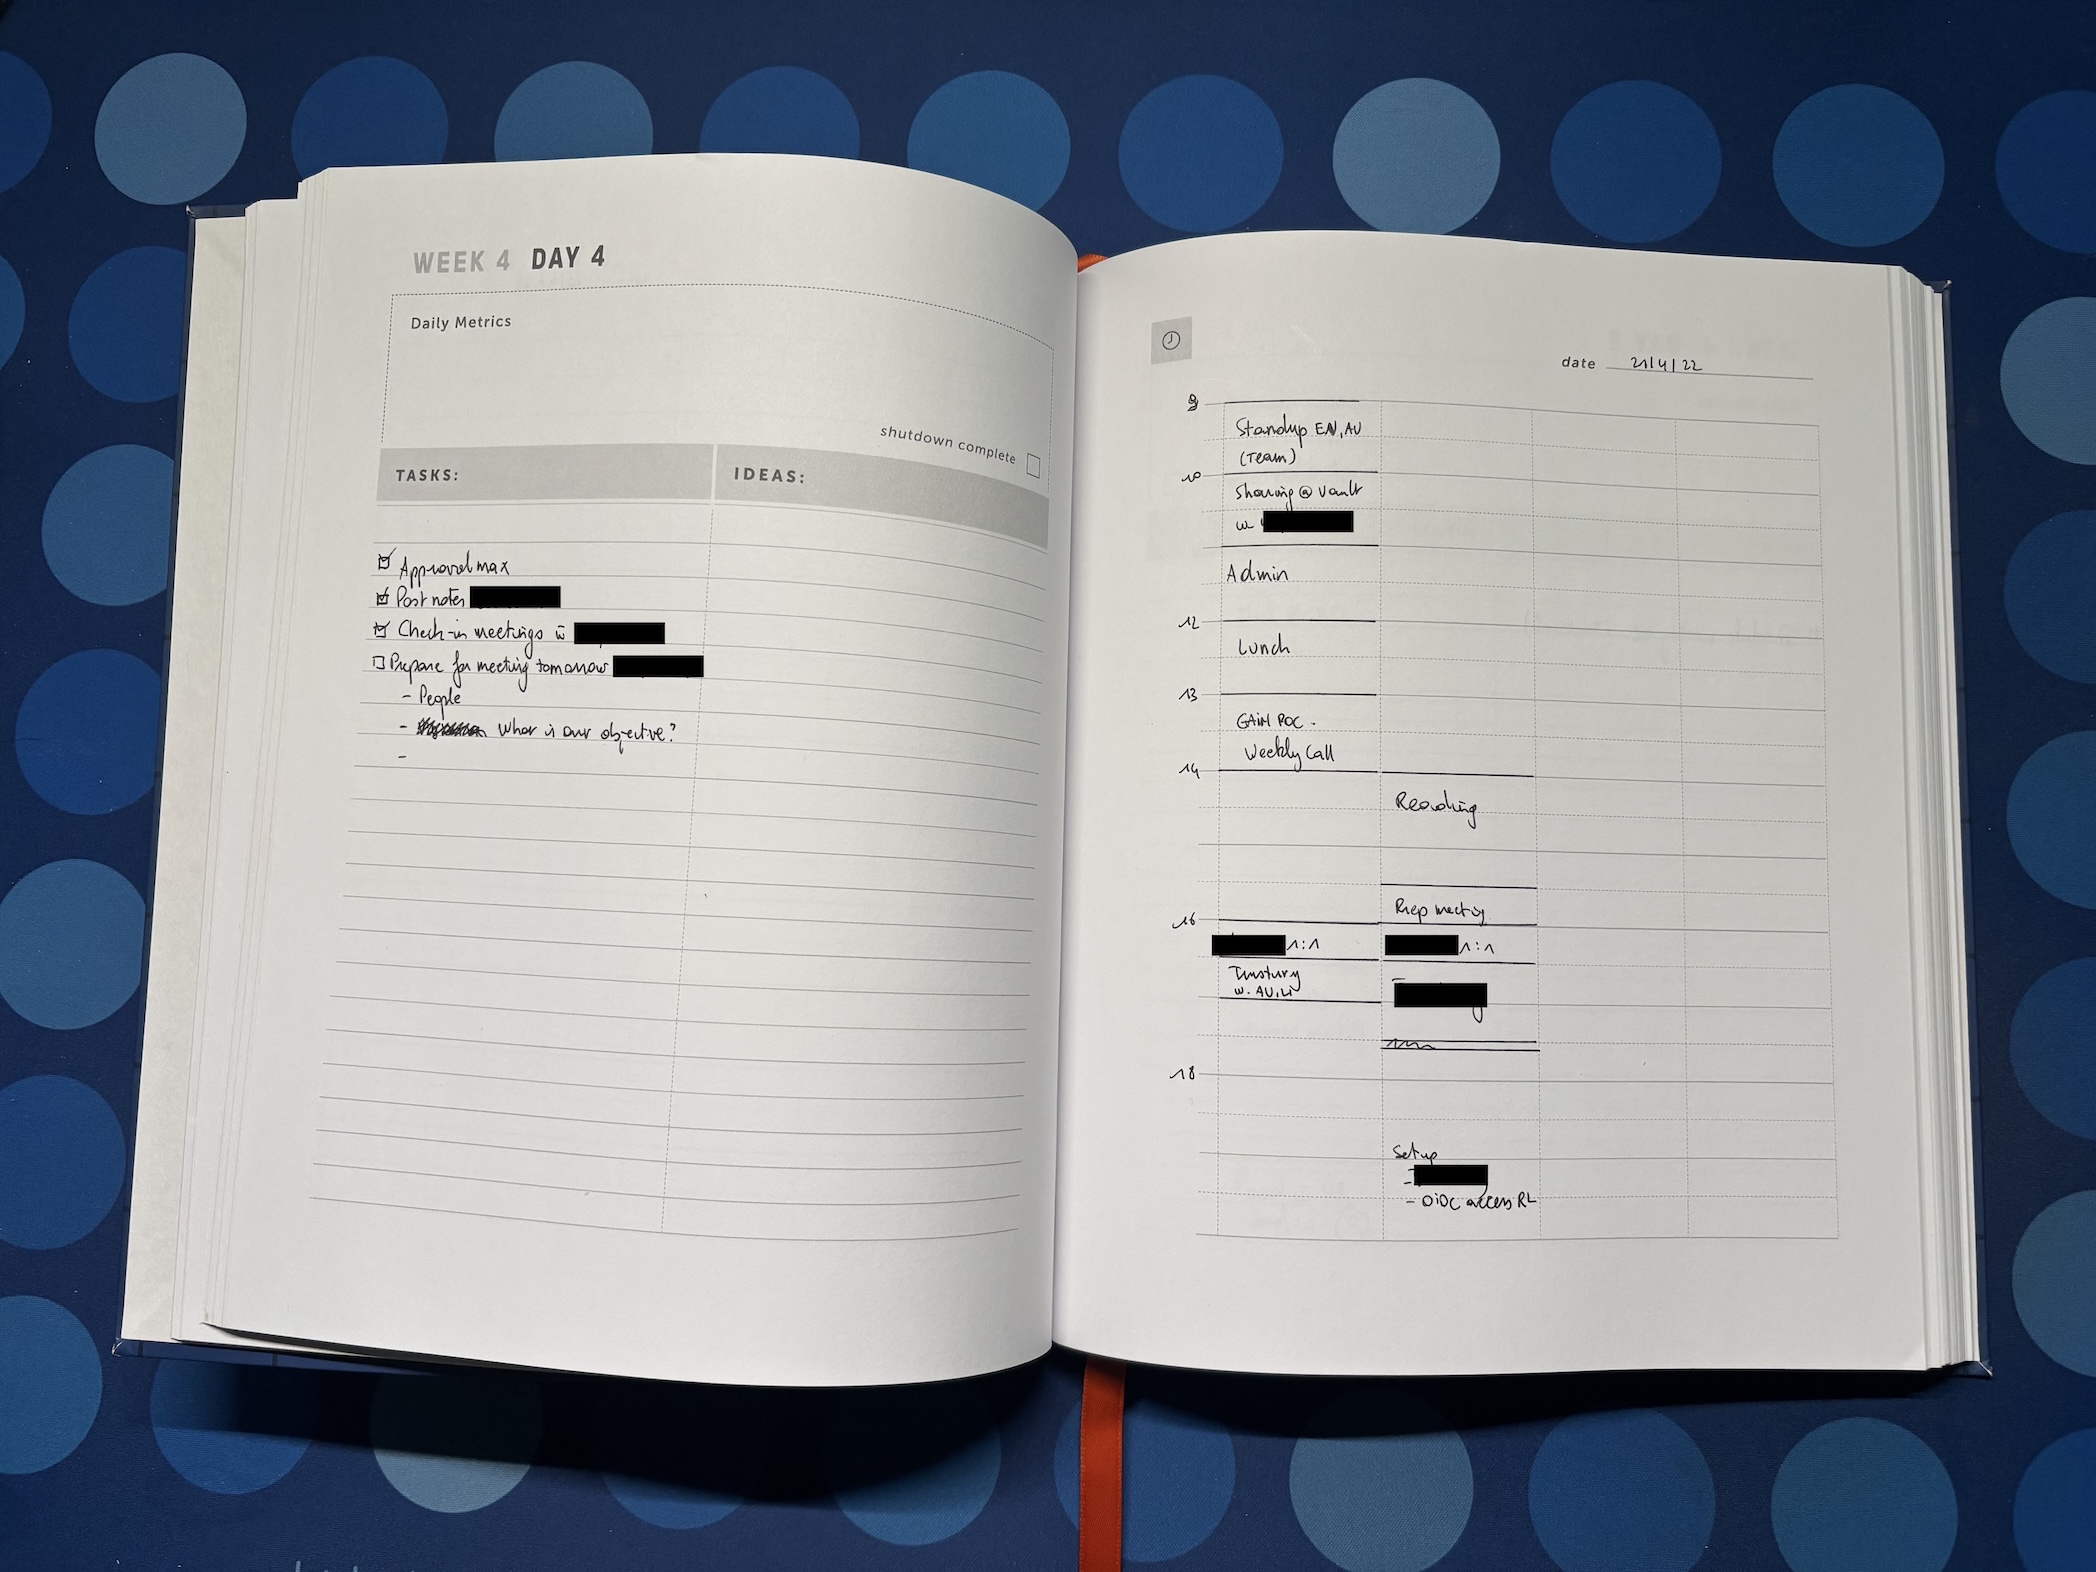 WEEK 4 DAY 4
Daily Metrics
shutdown complete
TASKS:
IDEAS:
Approvalmax
Post notes
Check-in meetings w
Prepare for meeting tomorrow
- People
- What is our objective?
-
date 21/4/22
9
Standup EN, AU
(Team)
10
Sharing @ Vault
w
Admin
12
Lunch
13
GAIN POC -
Weekly Call
14
Reading
Prep meeting
16
1:1
1:1
w. AU, LI
18
Setup
-
- OIDC access RL